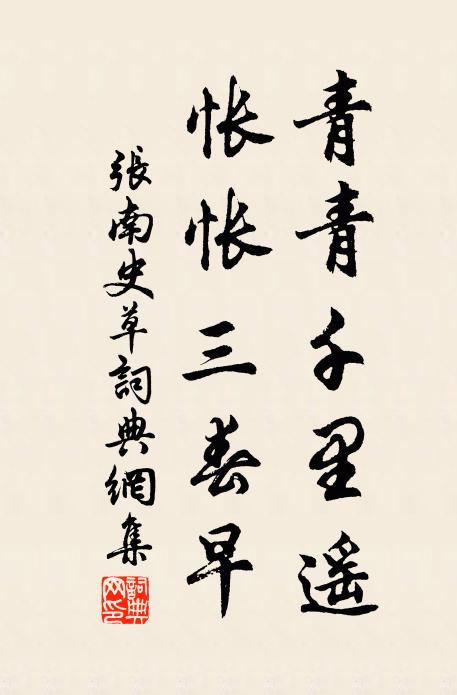 青青千里遥
怅怅三春早
張南史草詞典網集
詞典网印